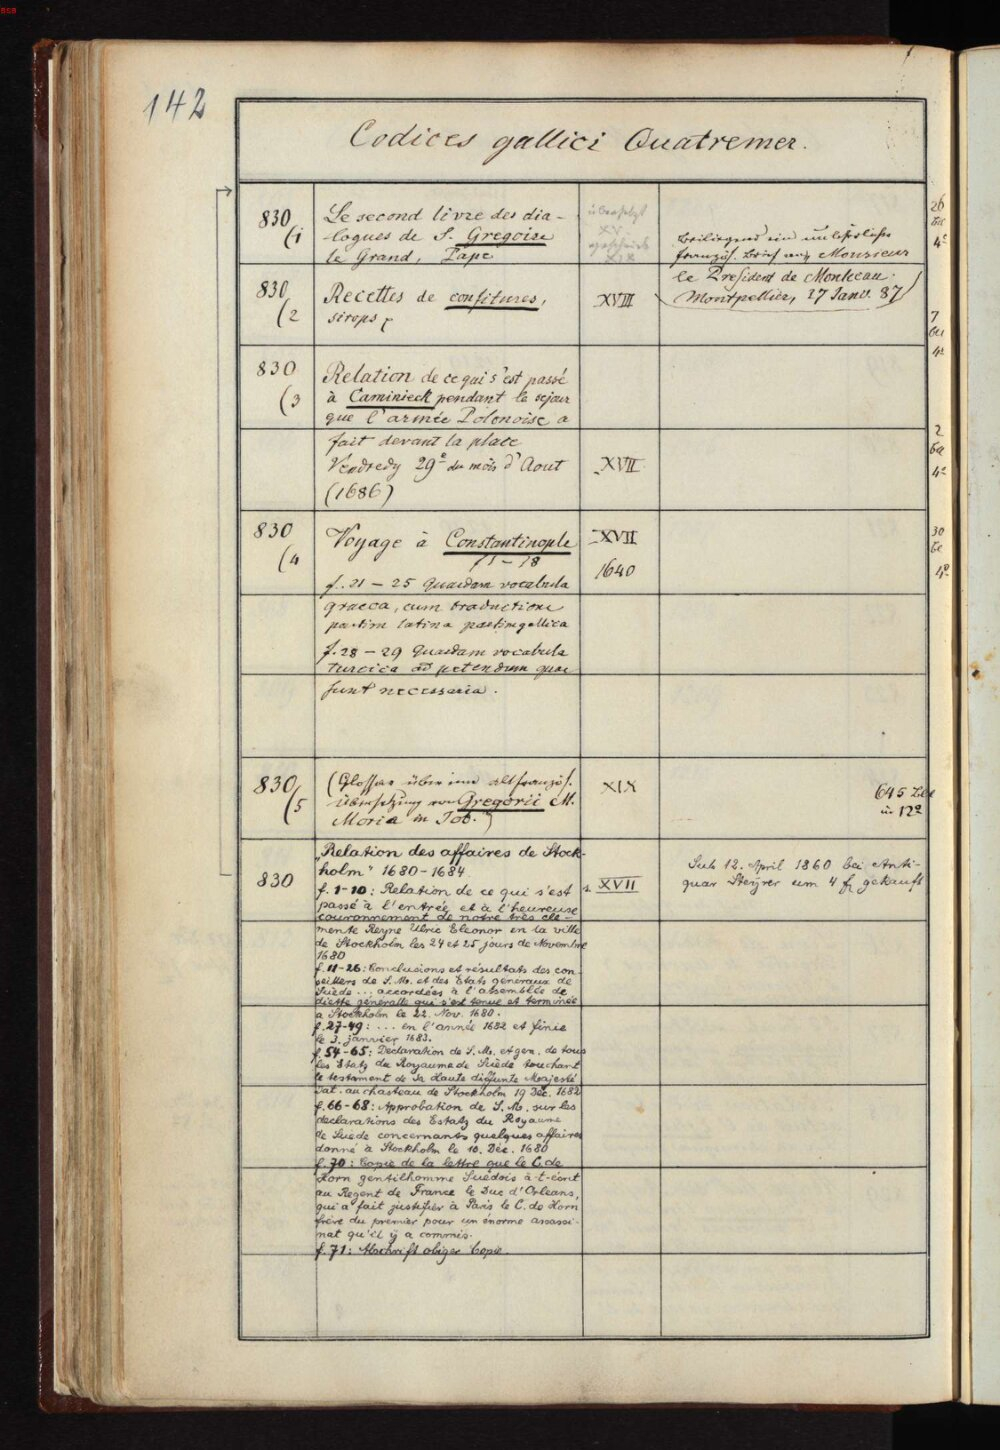 142
Codices gallici Quatremer.
830
(1
Le second livre des dia-
-logues de S. Gregoire
le Grand, Pape
übersetzt
XV.
XIX
beiliegend ein unleserlicher
französ. Brief Monsieur
le President de Monteau.
Montpellier, 17 Janv. 87)
26
4º
830
(2
Recettes de confitures,
sirops
XVIII
7
4º
830
(3
Relation de ce qui s'est passé
à Caminieck pendant le sejour
que l'armée Polonoise a
fait devant la place
Vendredy 29e du mois d'Aout
(1686)
XVII
2
4º
830
(4
Voyage à Constantinople
f 1 – 18
f. 21 – 25 Quaedam vocabula
graeca, cum traductione
partim latina partim gallica
f. 28 – 29 Quaedam vocabula
turcica ad petendum quae
sunt necessaria.
XVII
1640
30
4º
830
(5
(Glossar über eine altfranzös.
Übersetzung von Gregorii M.
Moria in Job.")
XIX
645
in 12º
830
„Relation des affaires de Stock-
holm" 1680 - 1684
f. 1-10: Relation de ce qui s'est
passé à l'entrée et à l'heureuse
couronnement de notre très cle-
mente Reyne Ulric Eleonor en la ville
de Stockholm les 24 et 25 jours de Novembre
1680
f. 11-26: Conclusions et résultats des con-
seillers de S. M. et des Etats generaux de
Suède ... accordées à l'assemblée de
diette generalle qui s'est tenue et terminée
a Stockholm le 22. Nov. 1680.
f. 27-49: ... en l'année 1682 et finie
le 3. janvier 1683.
f. 54-65: Declaration de S. M. et gen. de tous
les Estatz du Royaume de Suède touchant
le testament de Sa Haute diffunte Majesté
Dat. au chasteau de Stockholm 19 Déc. 1682
f. 66-68: Approbation de S. M. sur les
declarations des Estatz du Royaume
de Suède concernants quelques affaires
donné à Stockholm le 10. Déc. 1680
f. 70: Copie de la lettre que le C. de
Horn gentilhomme Suédois à t-ecrit
au Regent de France le Duc d'Orleans,
qui a fait justifier à Paris le C. de Horn
frère du premier pour un enorme assassi-
nat qu'il ÿ a commis.
f. 71: Abschrift obiger Copie.
s. XVII
Sub 12. April 1860 bei Anti-
quar Steyrer um 4 fl gekauft